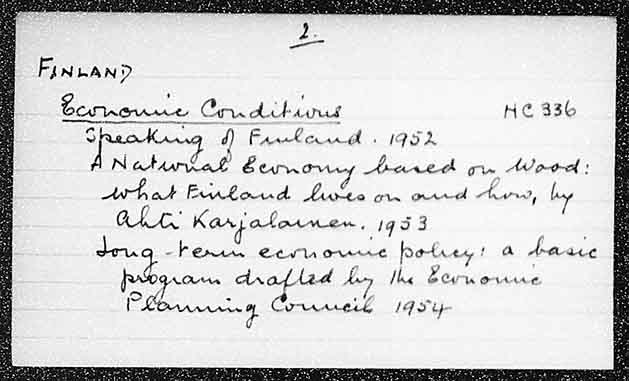 2.
FINLAND
Economic Conditions HC 336
Speaking of Finland. 1952
A National Economy based on Wood:
what Finland lives on and how, by
Ahti Karjalainen. 1953
Long-term economic policy: a basic
program drafted by the Economic
Planning Council 1954